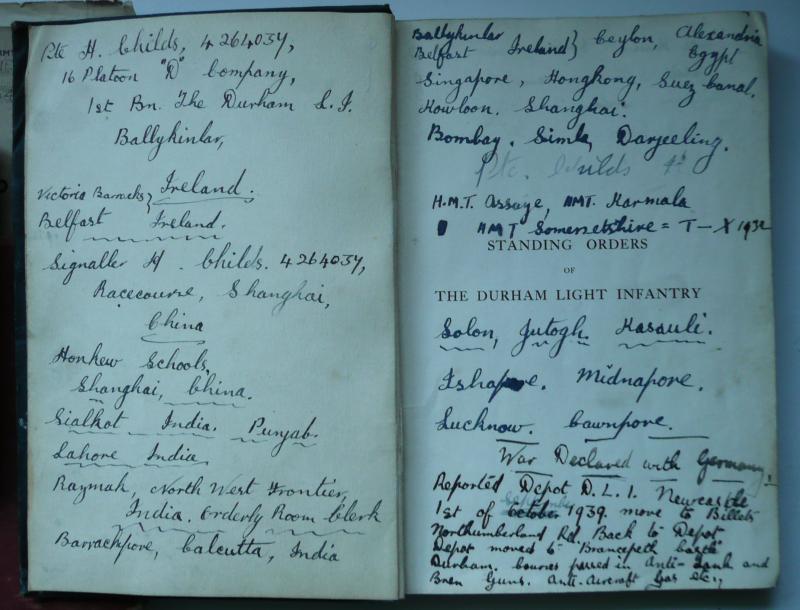 Pte H. Childs, 4264037,
16 Platoon "D" Company,
1st Bn. The Durham L.I.
Ballykinlar,
Ireland.
Victoria Barracks}
Belfast Ireland.
Signaller H. Childs. 4264037,
Racecourse, Shanghai,
China
Honkew Schools,
Shanghai, China.
Sialkot India. Punjab.
Lahore India
Razmak, North West Frontier,
India. Orderly Room Clerk
Barrackpore, Calcutta, India
Ballykinlar
Belfast Ireland} Ceylon, Alexandria
Egypt
Singapore, Hongkong, Suez Canal.
Kowloon. Shanghai.
Bombay. Simla, Darjeeling.
Pte. Childs
H.M.T. Assaye, HMT. Karmala
HMT Somersetshire = T - X 1932
STANDING ORDERS
OF
THE DURHAM LIGHT INFANTRY
Solon, Jutogh. Kasauli.
Ishapore. Midnapore.
Lucknow. Cawnpore.
War Declared with Germany!
Reported Depot D.L.I. Newcastle
1st of October 1939. move to Billets
Northumberland Rd. Back to Depot
Depot moved to "Brancepeth Castle"
Durham. Courses passed in Anti-Tank and
Bren Guns. Anti-Aircraft Gas etc.,